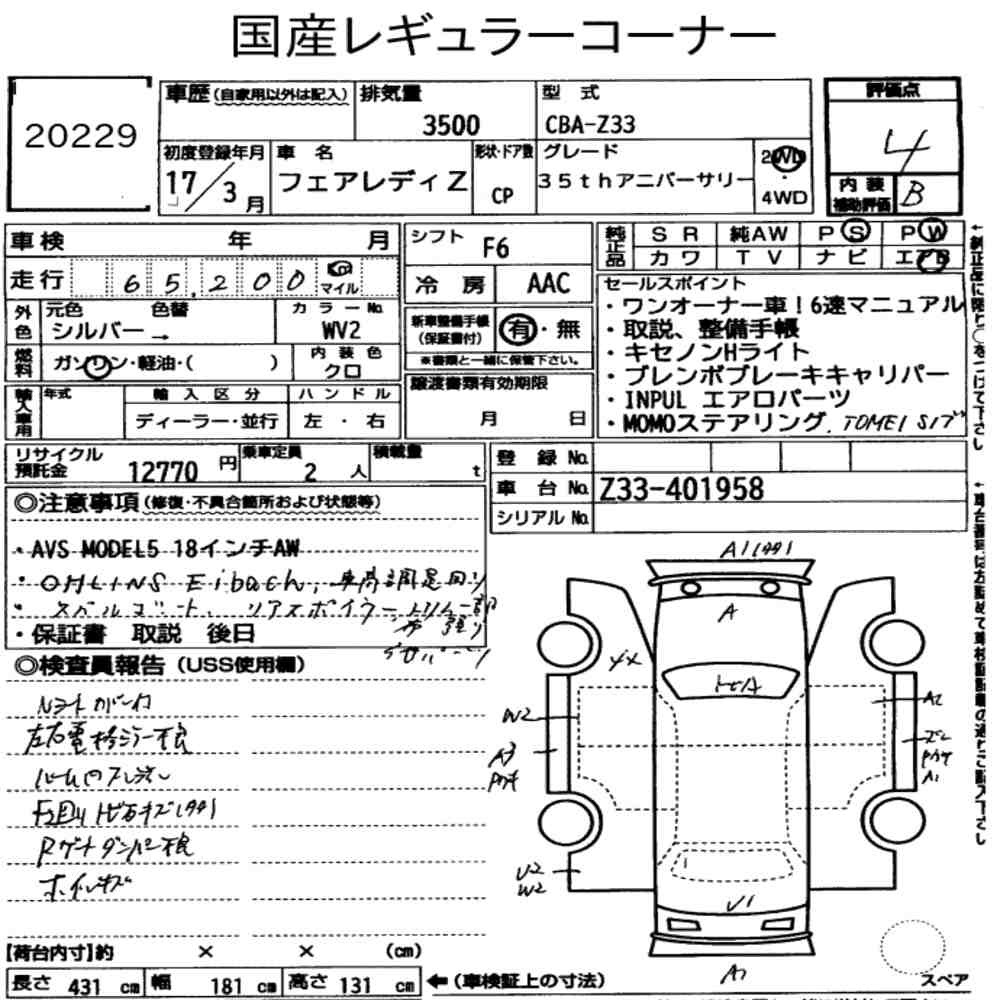 国産レギュラーコーナー
20229
車歴(自家用以外は記入) 排気量 型 式 評価点
3500 CBA-Z33 4
初度登録年月 車 名 形状・ドア数 グレード 2WD
17/3月 フェアレディZ CP 35thアニバーサリー ・ 4WD
内装補助評価 B
車検 年 月 シフト F6 純正品 SR 純AW PS PW
カワ TV ナビ エアB
走行 65,200 km マイル 冷 房 AAC
外色 元色 色替 カラーNo.
シルバー→ WV2
新車整備手帳(保証書付) 有・無
※書類と一緒に保管下さい。
燃料 ガソリン・軽油・( ) 内装色 クロ
譲渡書類有効期限
月 日
輸入車用 年式 輸入区分 ハンドル
ディーラー・並行 左・右
セールスポイント
・ワンオーナー車!6速マニュアル
・取説、整備手帳
・キセノンHライト
・ブレンボブレーキキャリパー
・INPUL エアロパーツ
・MOMOステアリング. TOMEI
←純正品に限り○をつけて下さい
リサイクル預託金 12770円 乗車定員 2人 積載量 t
登 録 No.
車 台 No. Z33-401958
シリアル No.
◎注意事項(修復・不具合箇所および状態等)
・AVS MODEL5 18インチAW
・OHLINS Eibach, 車高調足回り
・保証書 取説 後日
◎検査員報告(USS使用欄)
左右電格ミラー不良
Rゲートダンパー不良
ホイルキズ
A
A2
W2
A3
A1
U2
W2
U1
A1
【荷台内寸】約 × × (cm)
長さ 431 cm 幅 181 cm 高さ 131 cm ←(車検証上の寸法)
スペア